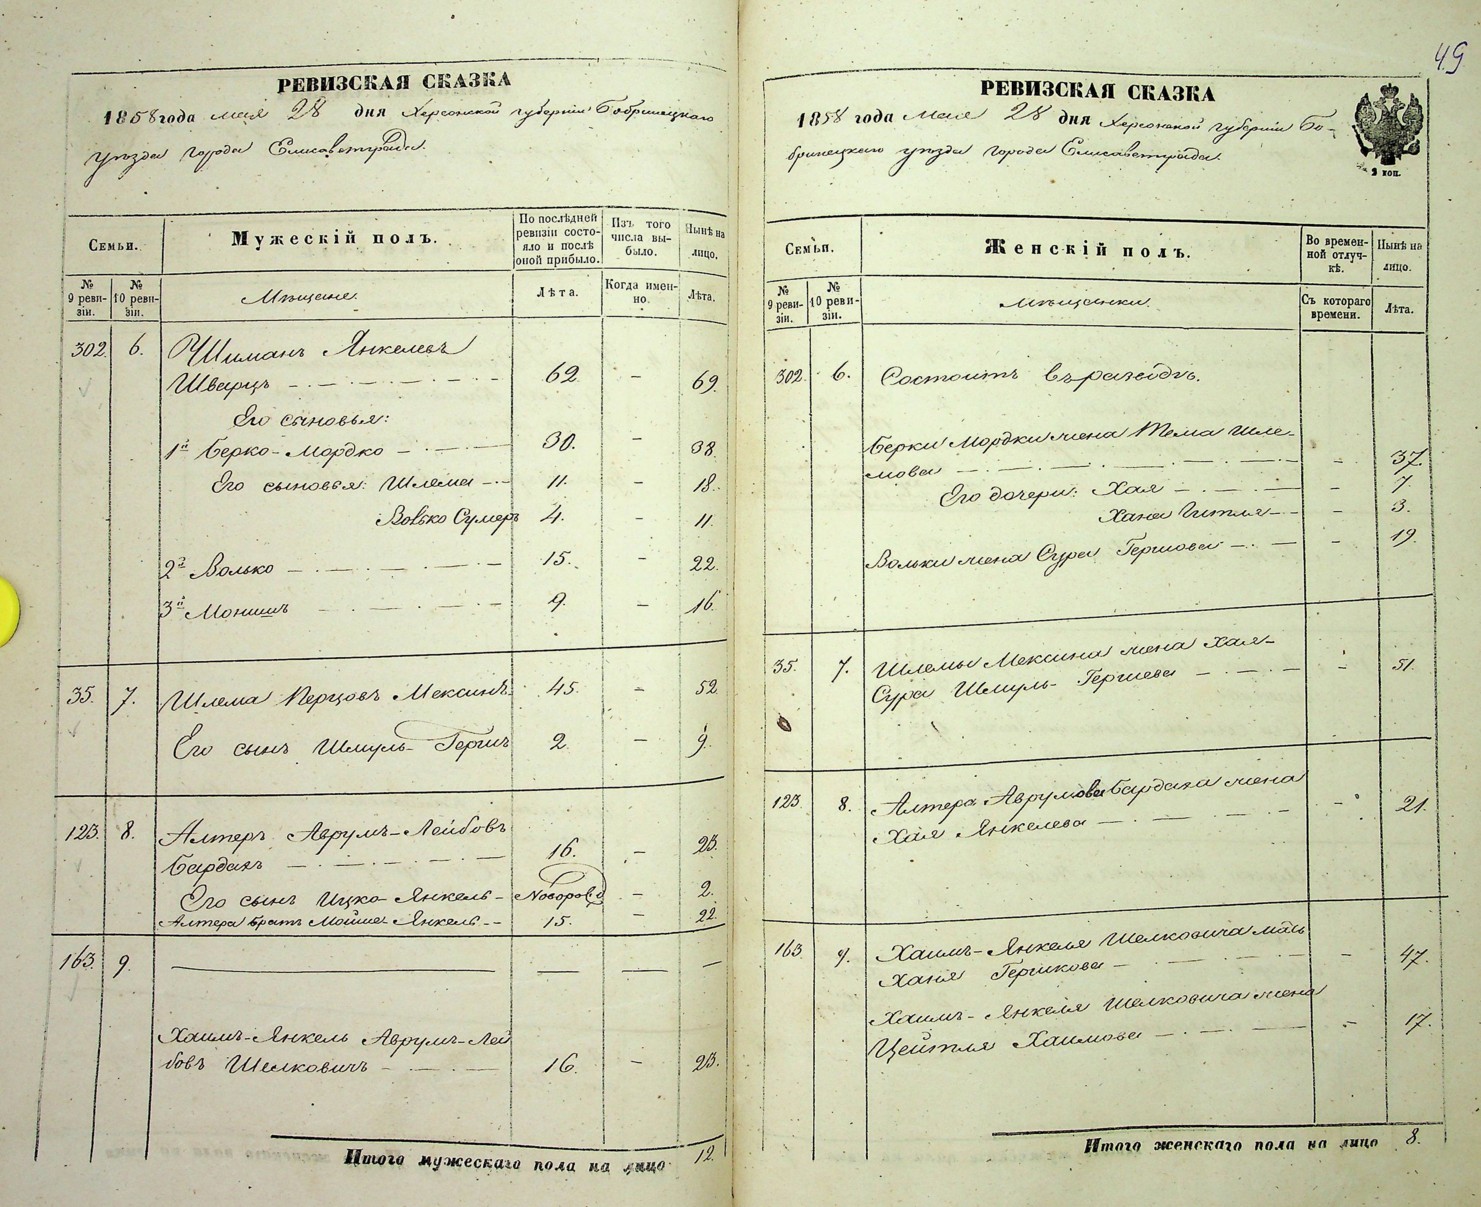 РЕВИЗСКАЯ СКАЗКА
1858 года мая 28 дня Херсонской губерніи Бобринецкаго
уѣзда города Елисаветграда.
Семьи.
Мужескій полъ.
По послѣдней
ревизіи состо-
яло и послѣ
оной прибыло.
Изъ того
числа вы-
было.
Нынѣ на
лицо.
№
9 реви-
зіи.
№
10 реви-
зіи.
Мѣщане.
Лѣта.
Когда имен-
но.
Лѣта.
302. 6. Шиманъ Янкелевъ
Шварцъ 62 - 69.
Его сыновья:
1й Берко-Мордко 30. - 38.
Его сыновья: Шлема 11. - 18.
Волько Сумеръ 4. - 11.
2й Волько 15. - 22.
3й Монишъ 9. - 16.
35. 7. Шлема Перцовъ Мексинъ 45. - 52
Его сынъ Шмуль-Гершъ 2 - 9.
123. 8. Алтеръ Аврумъ-Лейбовъ
Бардахъ 16. - 23.
Его сынъ Ицко-Янкель - Новорож - 2.
Алтера братъ Мойше-Янкель 15. - 22.
163. 9.
Хаимъ-Янкель Аврумъ-Лей
бовъ Шелковичъ 16. - 23.
Итого мужескаго пола на лицо 12.
49
РЕВИЗСКАЯ СКАЗКА
1858 года мая 28 дня Херсонской губерніи Бо-
бринецкаго уѣзда города Елисаветграда.
2 коп.
Семьи.
Женскій полъ.
Во времен-
ной отлуч-
кѣ.
Нынѣ на
лицо.
№
9 реви-
зіи.
№
10 реви-
зіи.
Мѣщанки.
Съ котораго
времени.
Лѣта.
302. 6. Состоитъ въ разводѣ.
Берки Мордки жена Тема Шле-
мова - 37.
Его дочери: Хая - 7
Хана Гитля - 3.
Вольки жена Сура Гершова - 19.
35. 7. Шлемы Мексина жена Хая-
Сура Шмуль-Гершева - 51.
123. 8. Алтера Аврумова Бардаха жена
Хая Янкелева - 21.
163. 9. Хаимъ-Янкеля Шелковича мать
Ханя Гершкова - 47.
Хаимъ-Янкеля Шелковича жена
Цейтля Хаимова - 17.
Итого женскаго пола на лицо 8.